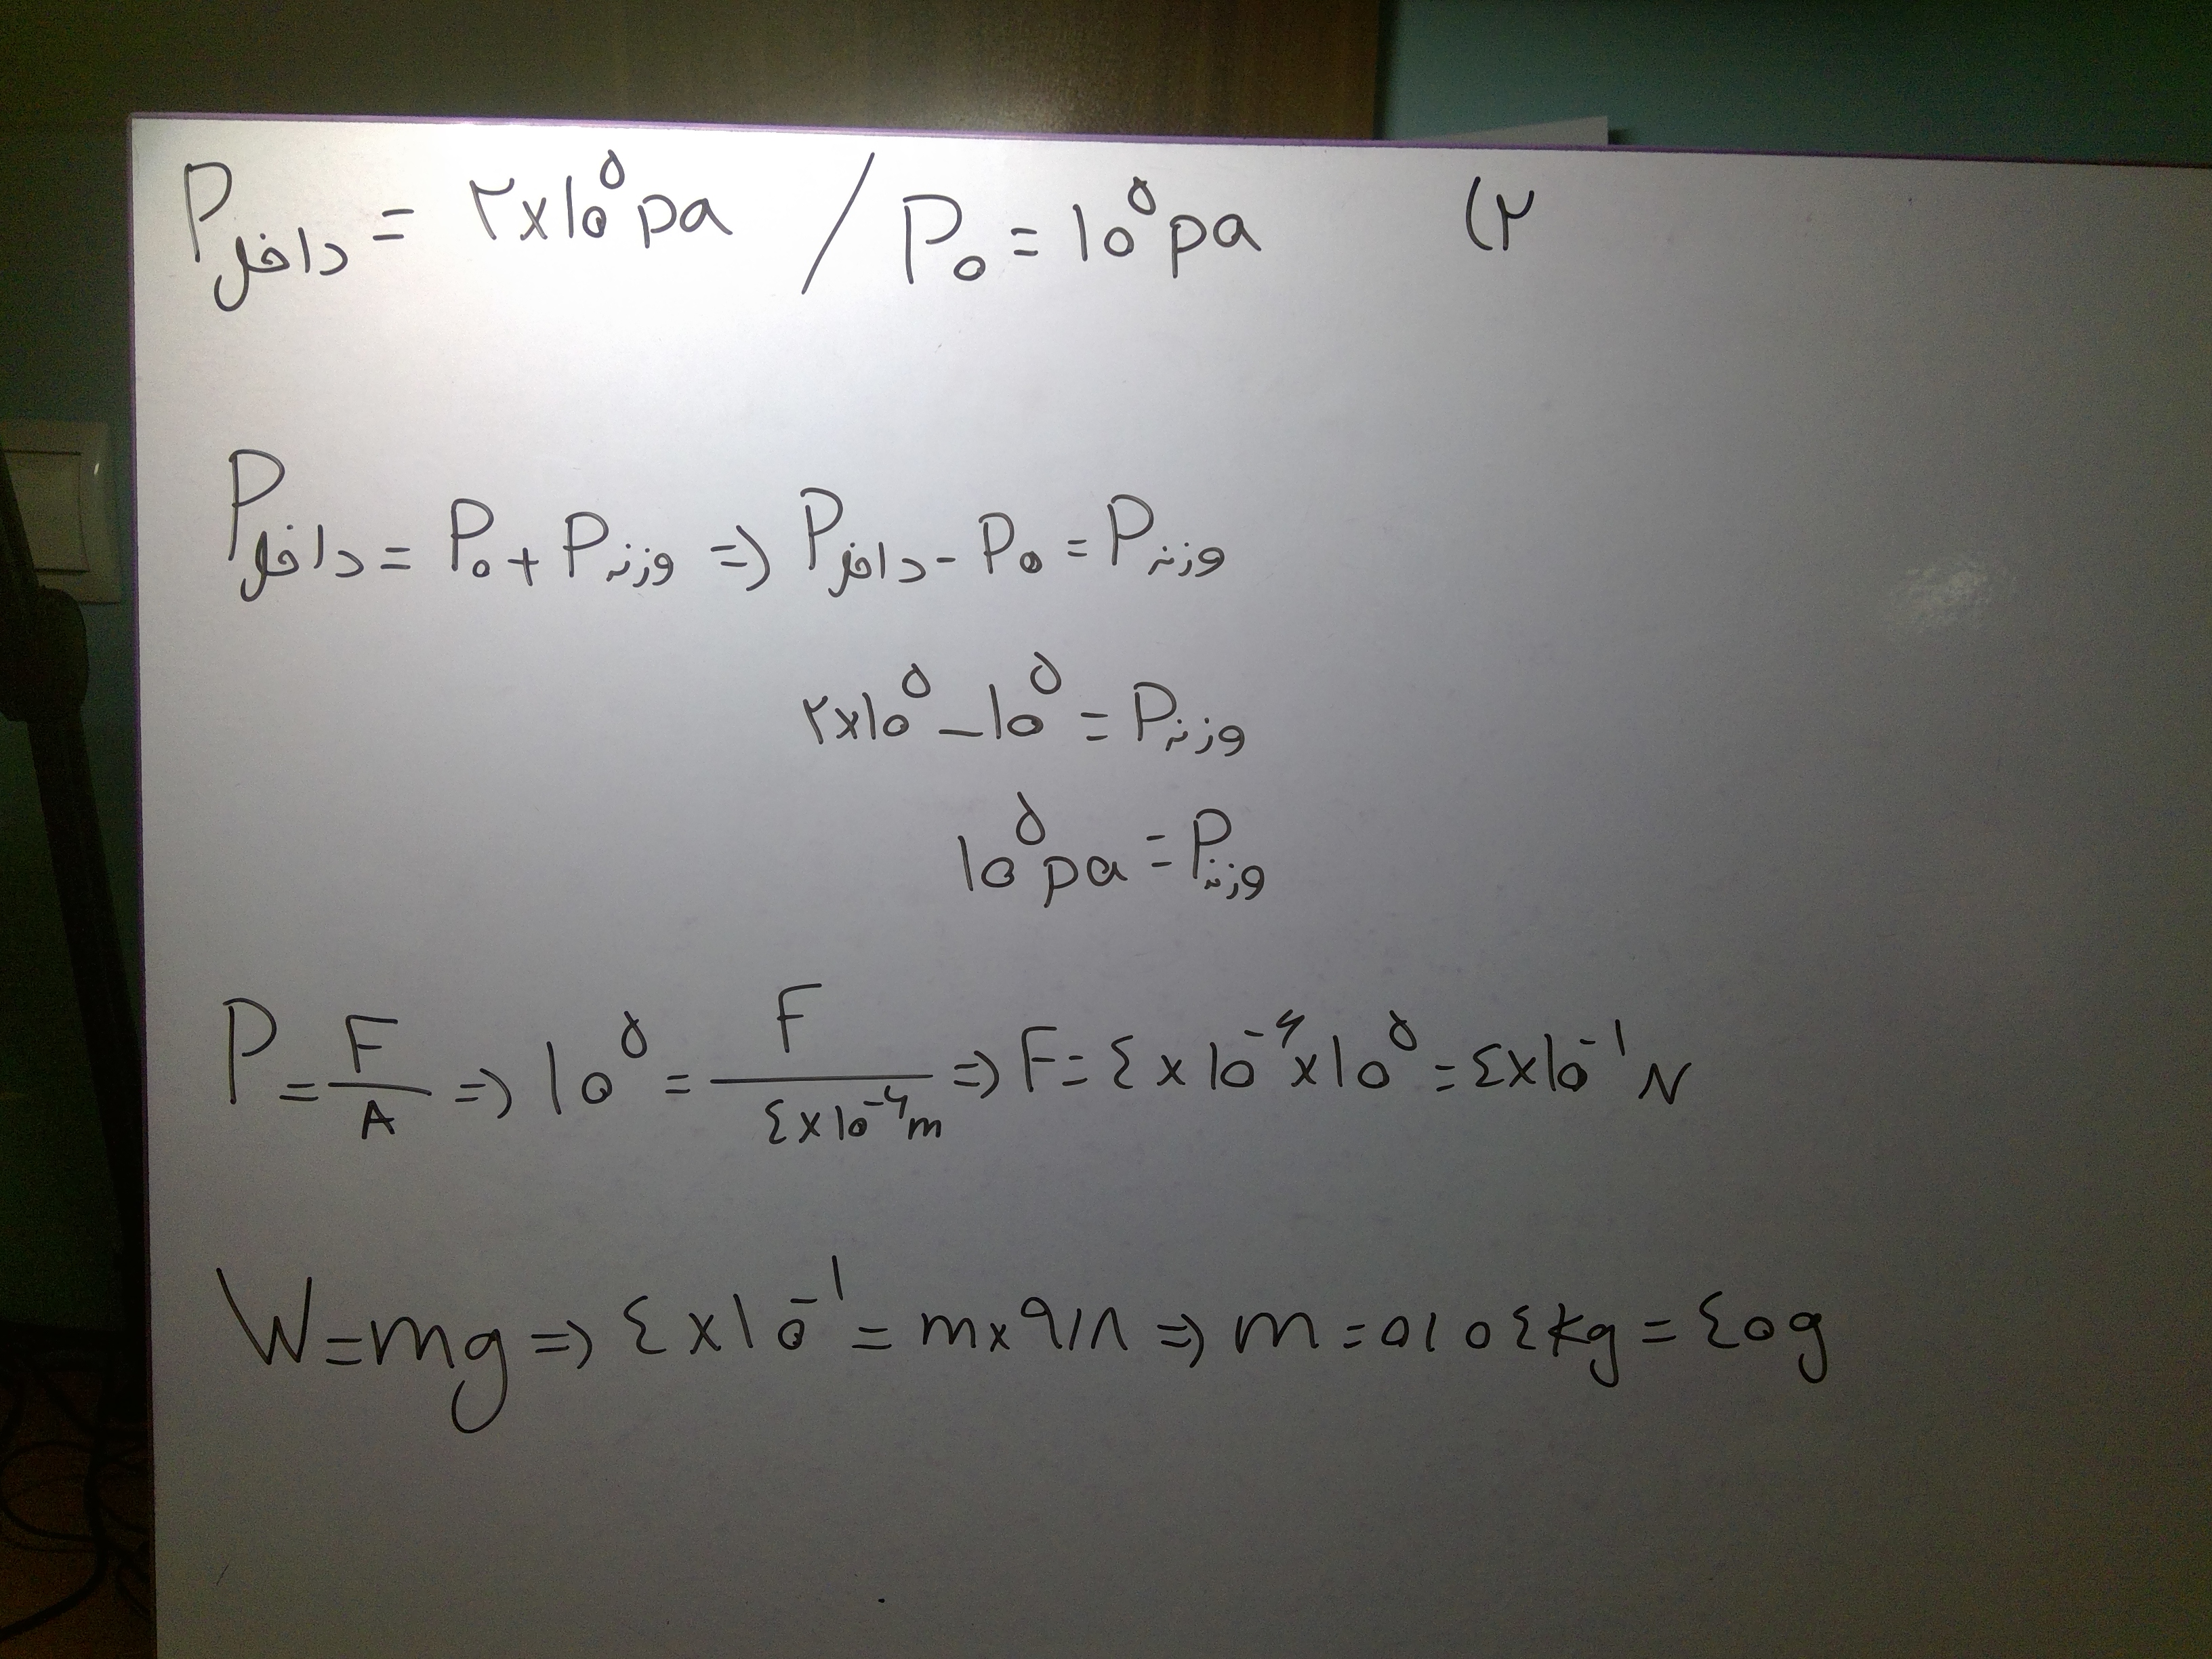 P داخل = ۲×۱۰^۵ pa / P۰ = ۱۰^۵ pa (۲
P داخل = P۰ + P وزنه => P داخل - P۰ = P وزنه
۲×۱۰^۵ - ۱۰^۵ = P وزنه
۱۰^۵ pa = P وزنه
P = F/A => ۱۰^۵ = F/(۴×۱۰^-۶ m) => F = ۴×۱۰^-۶ × ۱۰^۵ = ۴×۱۰^-۱ N
W = mg => ۴×۱۰^-۱ = m×۹/۸ => m = ۰/۰۴ kg = ۴۰ g